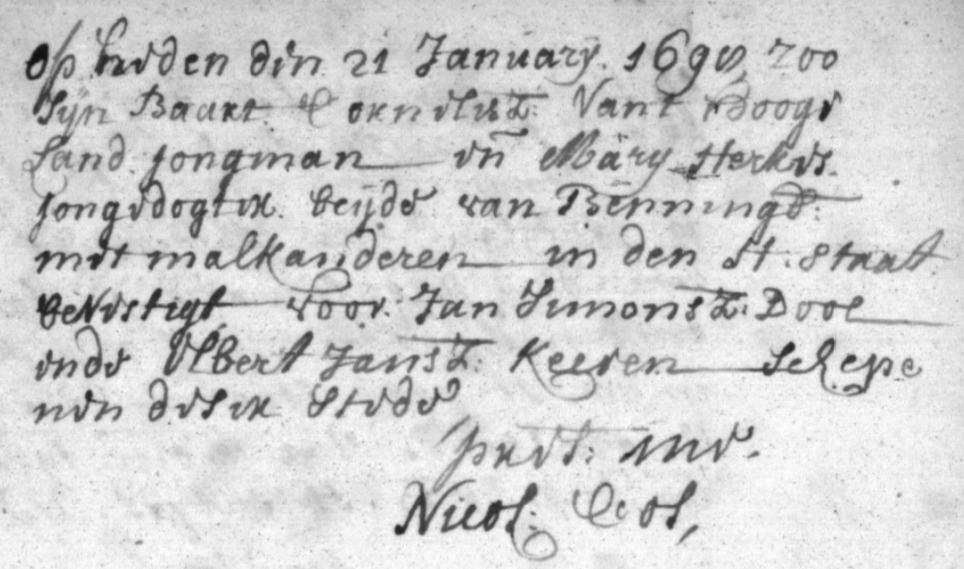 op huden den 21 January. 1698, zoo
Sijn Baart Cornelisz: Vant Hooge
Land jongman en Mary Sterkes.
jongedogter. beijde van Benningb:
met malkanderen in den H. Staat
bevestigt voor: Jan Simonsz: Dool
ende Albert Jansz: Keesen Schepe
nen deser Stede
pres.t: me.
Nicol: Col,